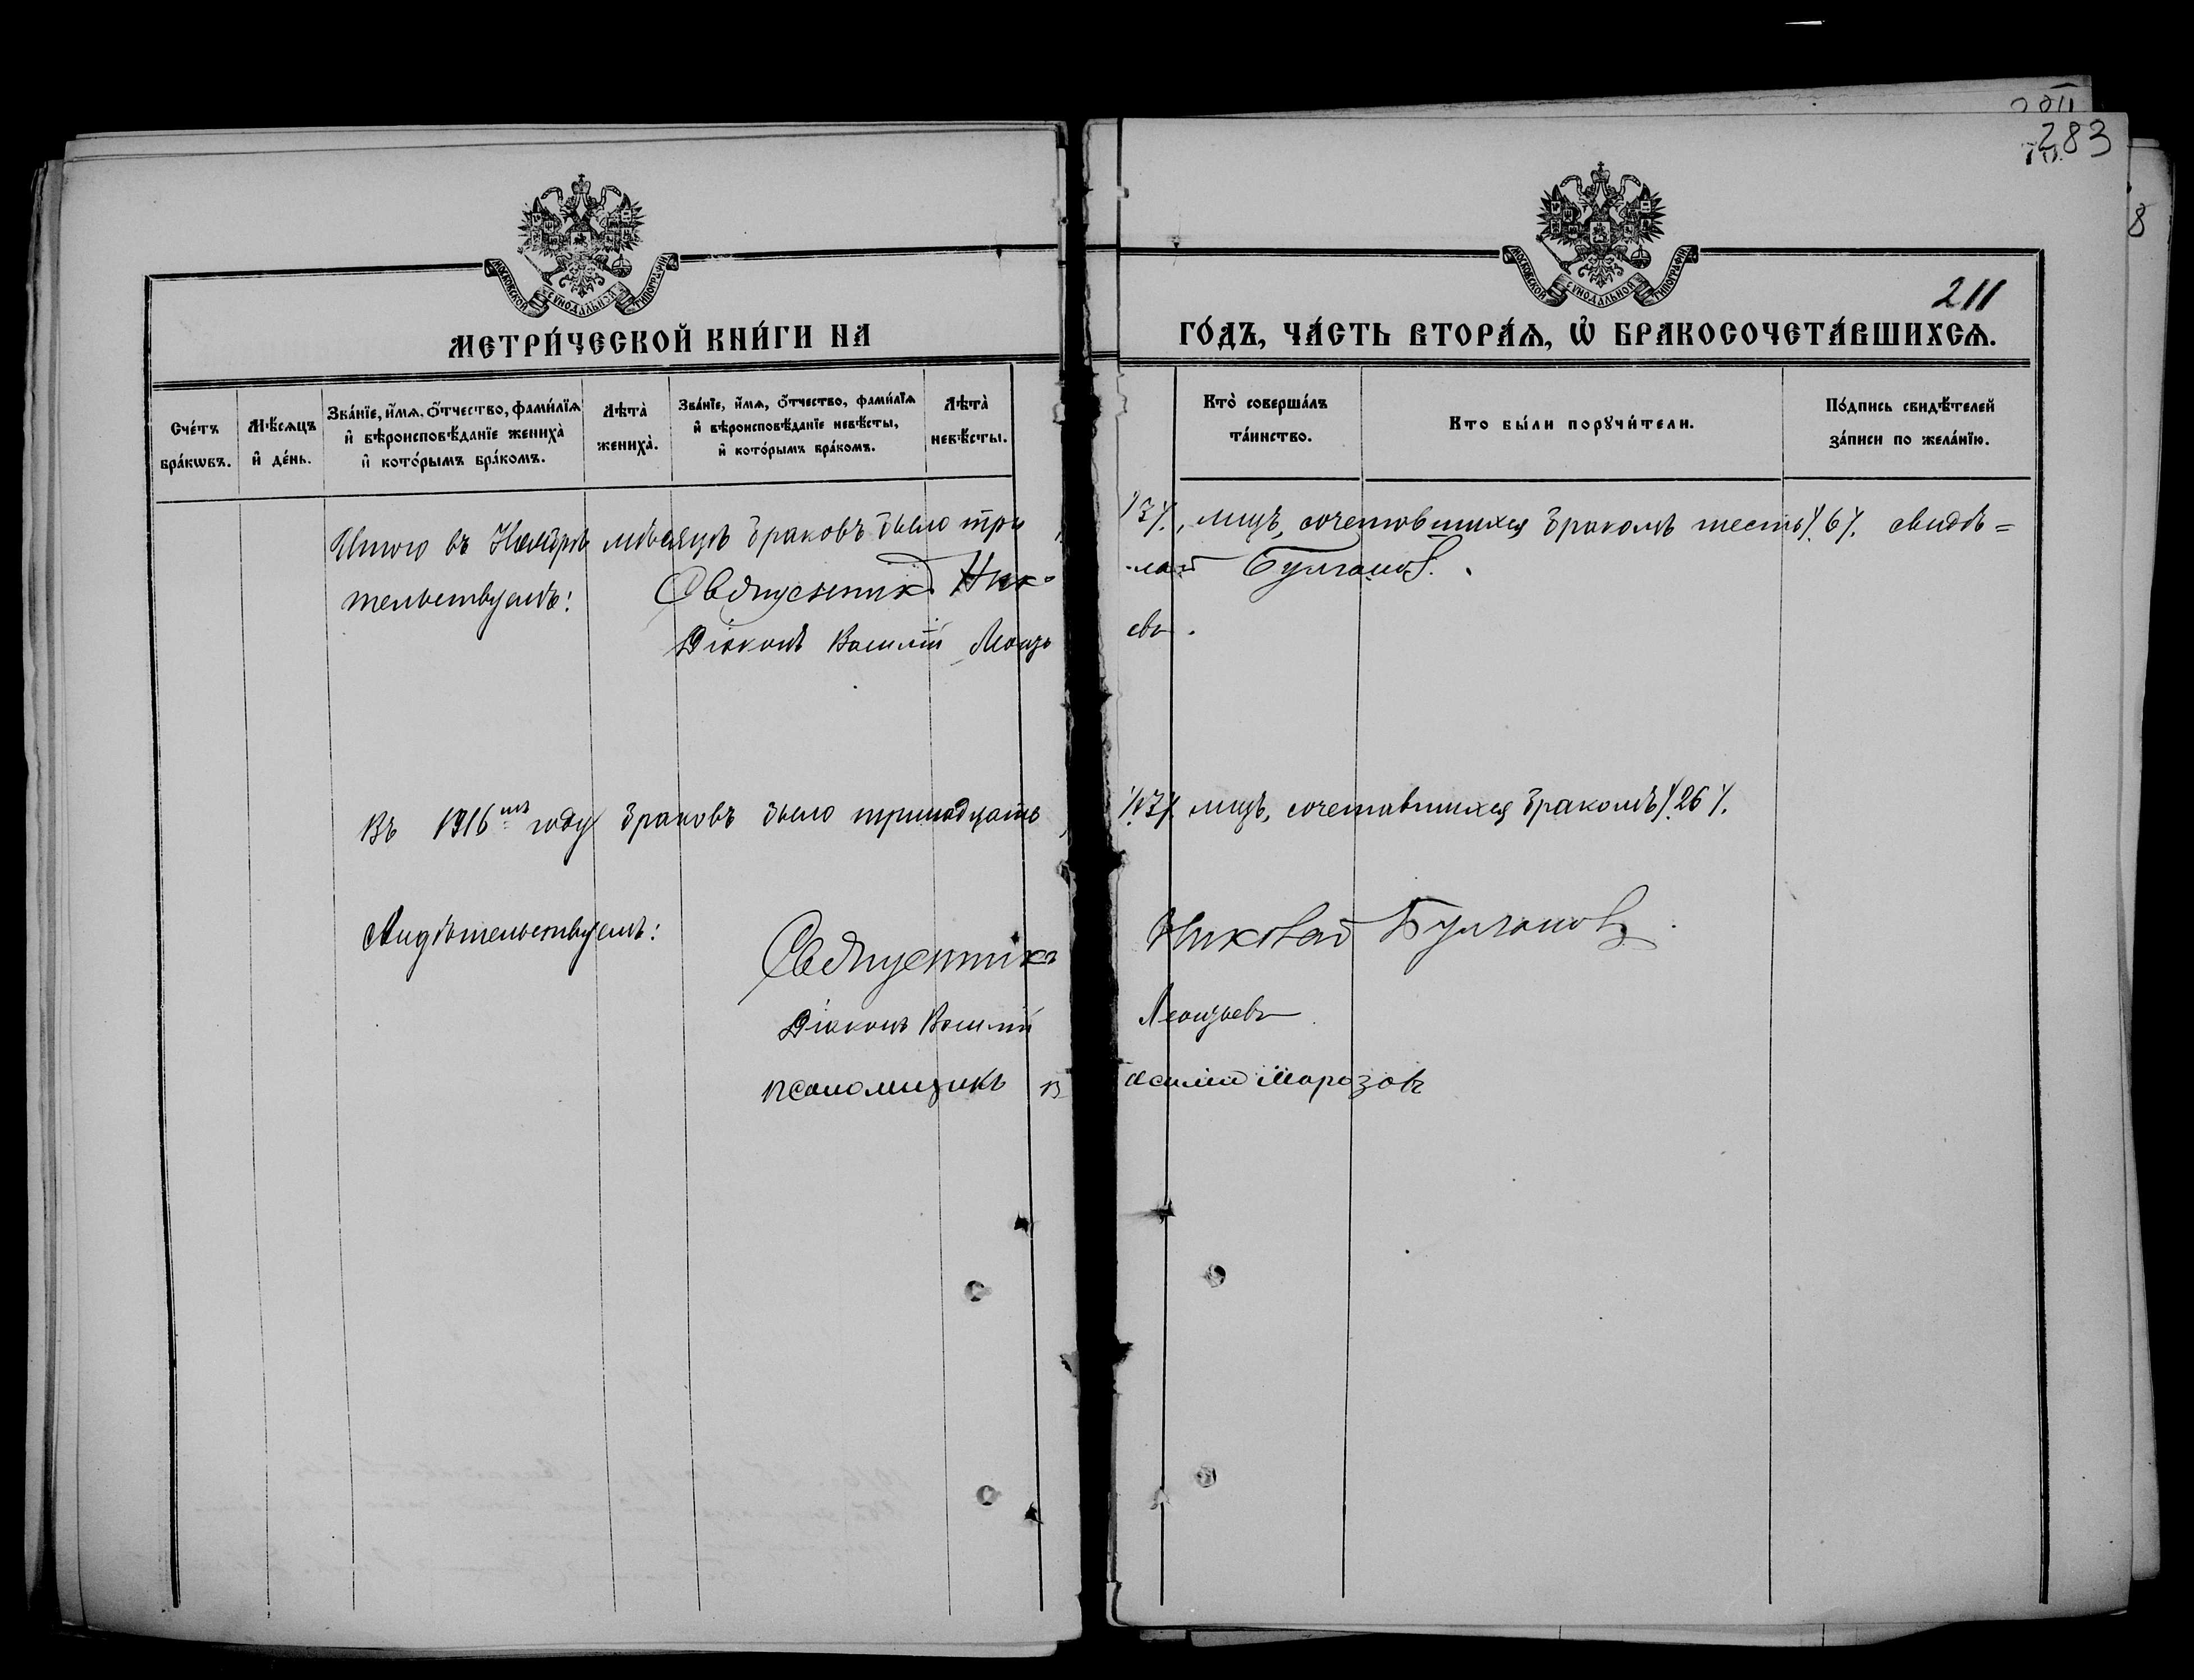 283
8
211
МОСКОВСКОЙ СѴНОДАЛЬНОЙ ТИПОГРАФІИ
МОСКОВСКОЙ СѴНОДАЛЬНОЙ ТИПОГРАФІИ
МЕТРИ́ЧЕСКОЙ КНИ́ГИ НА ГО́ДЪ, ЧА́СТЬ ВТОРА́Ѧ, Ѡ҆ БРАКОСОЧЕТА́ВШИХСѦ.
Сче́тъ бра́кѡвъ.
Мѣ́сѧцъ и҆ де́нь.
Зва́нїе, и҆́мѧ, ѻ҆́тчество, фами́лїѧ и҆ вѣроисповѣ́данїе жениха̀ и҆ кото́рымъ бра́комъ.
Лѣта̀ жениха̀.
Зва́нїе, и҆́мѧ, ѻ҆́тчество, фами́лїѧ и҆ вѣроисповѣ́данїе невѣ́сты, и҆ кото́рымъ бра́комъ.
Лѣта̀ невѣ́сты.
Кто̀ соверша́лъ та́инство.
Кто бы́ли порꙋчи́тели.
По́дпись свидѣ́телей за́писи по жела́нїю.
Итого въ Ноябрѣ мѣсяцѣ браковъ было три /3/, лицъ, сочетавшихся бракомъ шесть /6/. свидѣ=
тельствуемъ: Священникъ Николай Булгаковъ.
Діаконъ Василій Леонтьевъ.
Въ 1916мъ году браковъ было тринадцать /13/ лицъ, сочетавшихся бракомъ /26/.
Свидѣтельствуемъ: Священникъ Николай Булгаковъ
Діаконъ Василій Леонтьевъ
псаломщикъ Василій Морозовъ